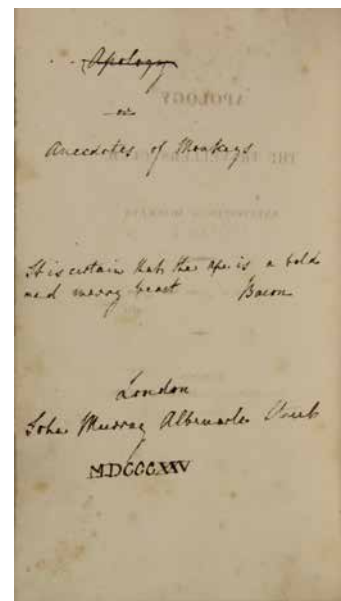 Apology
or
Anecdotes of Monkeys
It is certain that the ape is a bold
and merry beast Bacon
London
John Murray Albemarle Street
MDCCCXXV